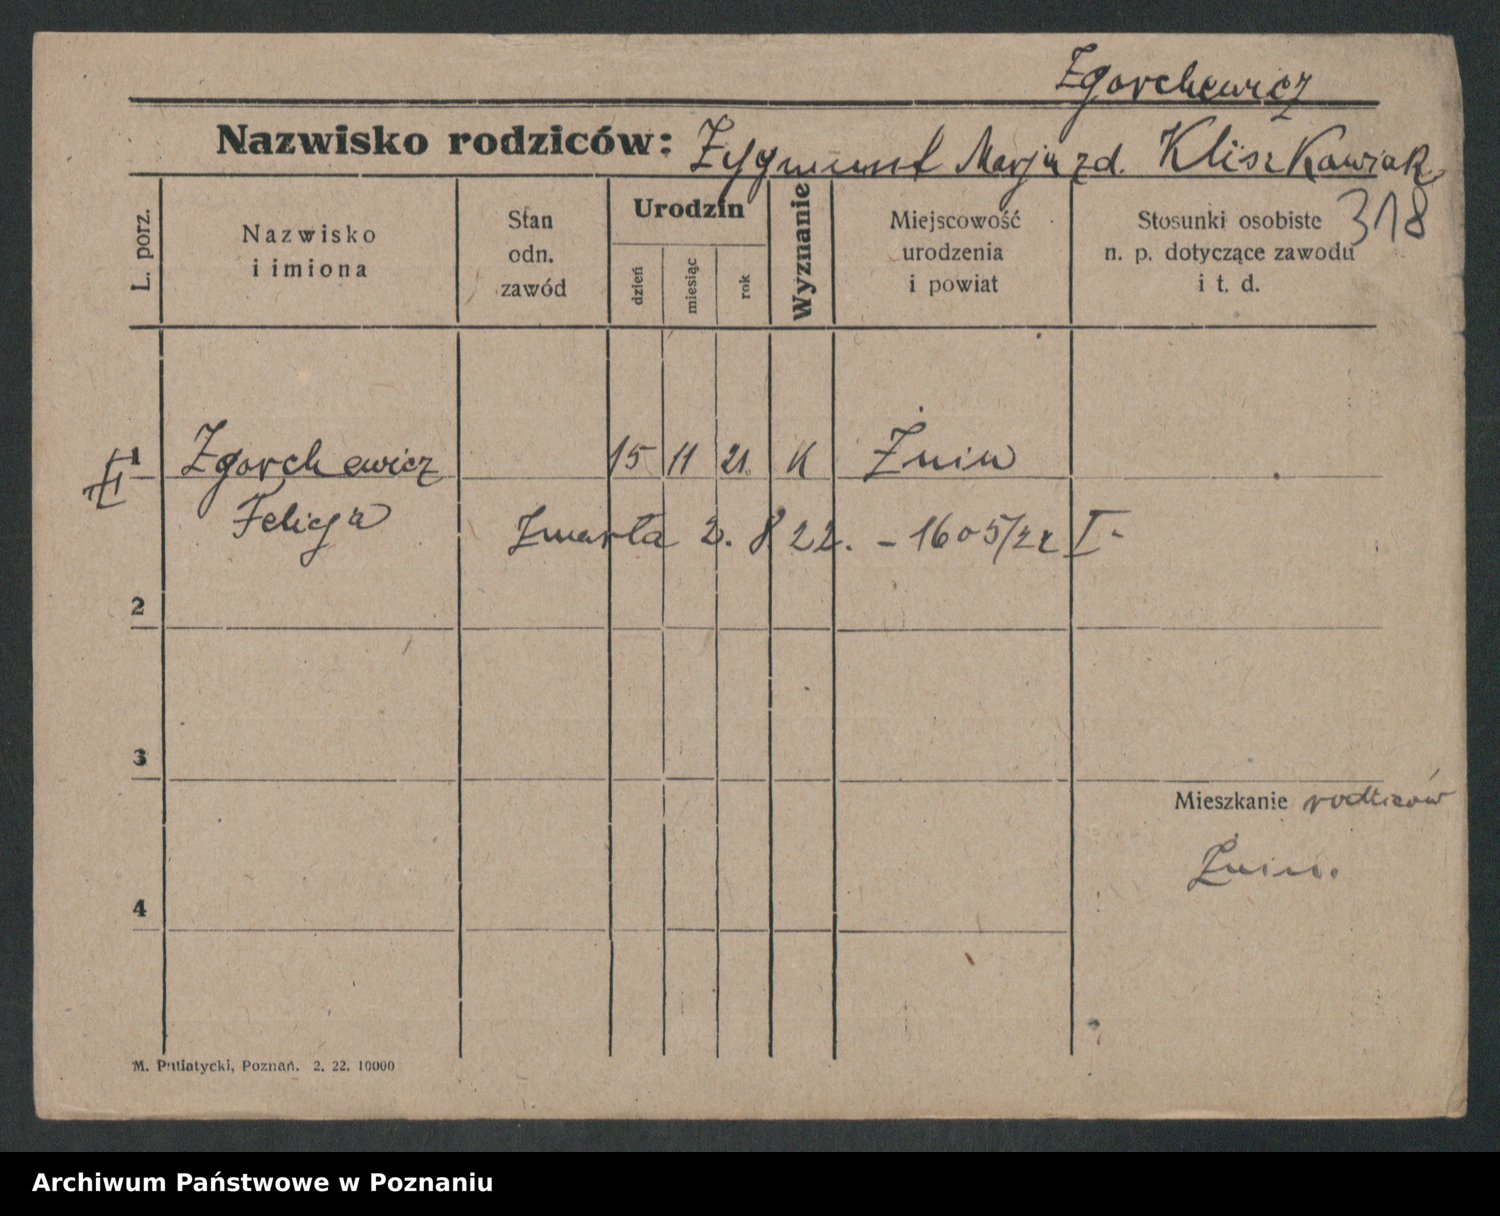 Zgorchewicz
Nazwisko rodziców: Zygmunt Marja zd. Kliszkowiak
318
L. porz.
Nazwisko
i imiona
Stan
odn.
zawód
Urodzin
dzień
miesiąc
rok
Wyznanie
Miejscowość
urodzenia
i powiat
Stosunki osobiste
n. p. dotyczące zawodu
i t. d.
1 Zgorchewicz 15 11 21. K Żnin
Felicja Zmarła 2. 8 22. - 1605/22 I-
2
3
Mieszkanie rodziców
Żnin.
4
M. Putiatycki, Poznań. 2. 22. 10000
Archiwum Państwowe w Poznaniu